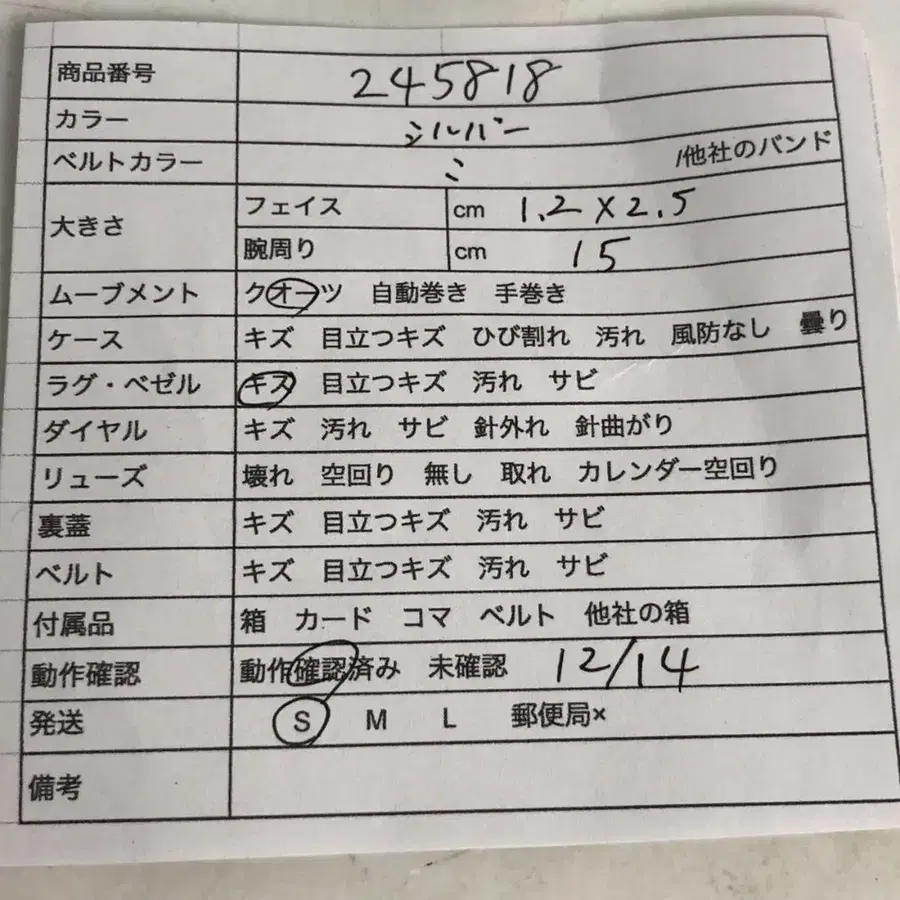 商品番号 245818
カラー シルバー
ベルトカラー 〃 /他社のバンド
大きさ フェイス cm 1.2×2.5
腕周り cm 15
ムーブメント クオーツ 自動巻き 手巻き
ケース キズ 目立つキズ ひび割れ 汚れ 風防なし 曇り
ラグ・ベゼル キズ 目立つキズ 汚れ サビ
ダイヤル キズ 汚れ サビ 針外れ 針曲がり
リューズ 壊れ 空回り 無し 取れ カレンダー空回り
裏蓋 キズ 目立つキズ 汚れ サビ
ベルト キズ 目立つキズ 汚れ サビ
付属品 箱 カード コマ ベルト 他社の箱
動作確認 動作確認済み 未確認 12/14
発送 S M L 郵便局×
備考